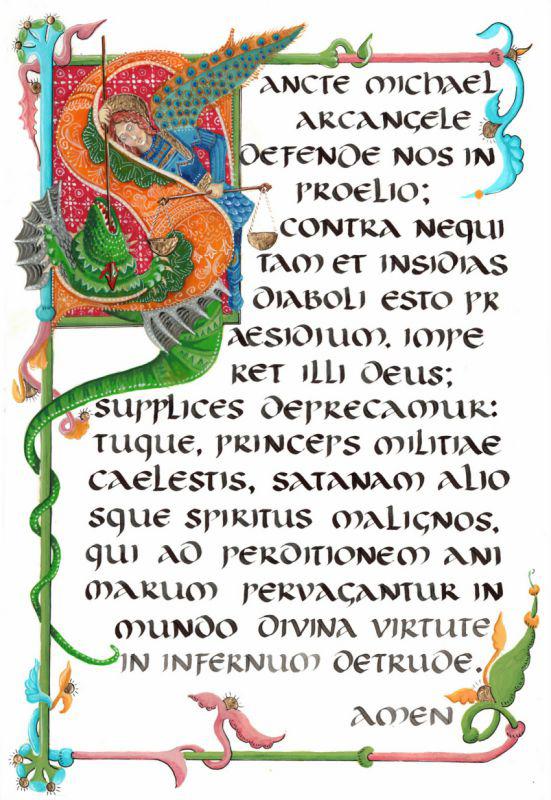 SANCTE MICHAEL
ARCANGELE
DEFENDE NOS IN
PROELIO;
CONTRA NEQUI
TAM ET INSIDIAS
DIABOLI ESTO PR
AESIDIUM. IMPE
RET ILLI DEUS;
SUPPLICES DEPRECAMUR:
TUQUE, PRINCEPS MILITIAE
CAELESTIS, SATANAM ALIO
SQUE SPIRITUS MALIGNOS,
QUI AD PERDITIONEM ANI
MARUM PERVAGANTUR IN
MUNDO DIVINA VIRTUTE
IN INFERNUM DETRUDE.
AMEN